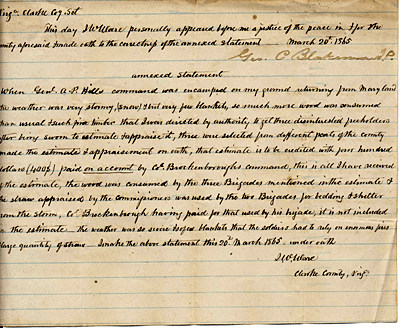 Virga. Clarke Coy. Sct
This day J W Ware personally appeared before me a justice of the peace in & for the
county aforesaid & made oath to the correctness of the annexed Statement March 20th 1865
Geo. C Blakemore J.P.
annexed Statement
When Genl. A. P. Hills command was encamped on my ground returning from Maryland
the weather was very stormy, (snow) & but very few blankets, so much more wood was consumed
than usual & such fine timber that I was directed by authority to get three disinterested freeholders
after being sworn to estimate & appraise it, three were selected from different parts of the county
made the estimate & appraisement on oath, that estimate is to be credited with four hundred
dollars (400$) paid on account by Col. Brockenboroughs command, this is all I have received
of the estimate, the wood was consumed by the three Brigades mentioned in the estimate &
the straw appraised by the Commissioners was used by the two Brigades for bedding & shelter
from the storm, Col. Brockenbrough having paid for that used by his brigade, it is not included
in the estimate - the weather was so severe & so few blankets that the soldiers had to rely on enormous fires
& large quantity of straw - I make the above statement this 20th March 1865 under oath
J W Ware
Clarke County, Virga